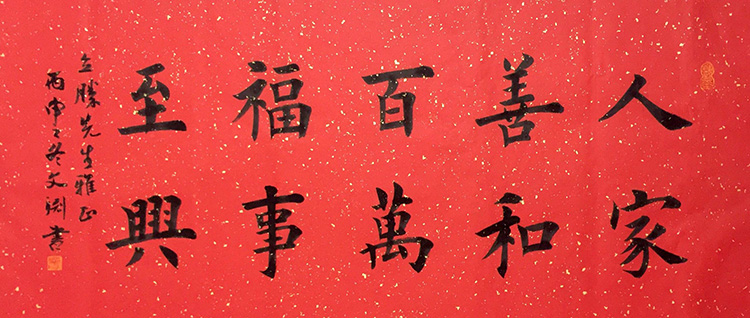 人善百福至
家和萬事興
立勝先生雅正
丙申之冬文渊書